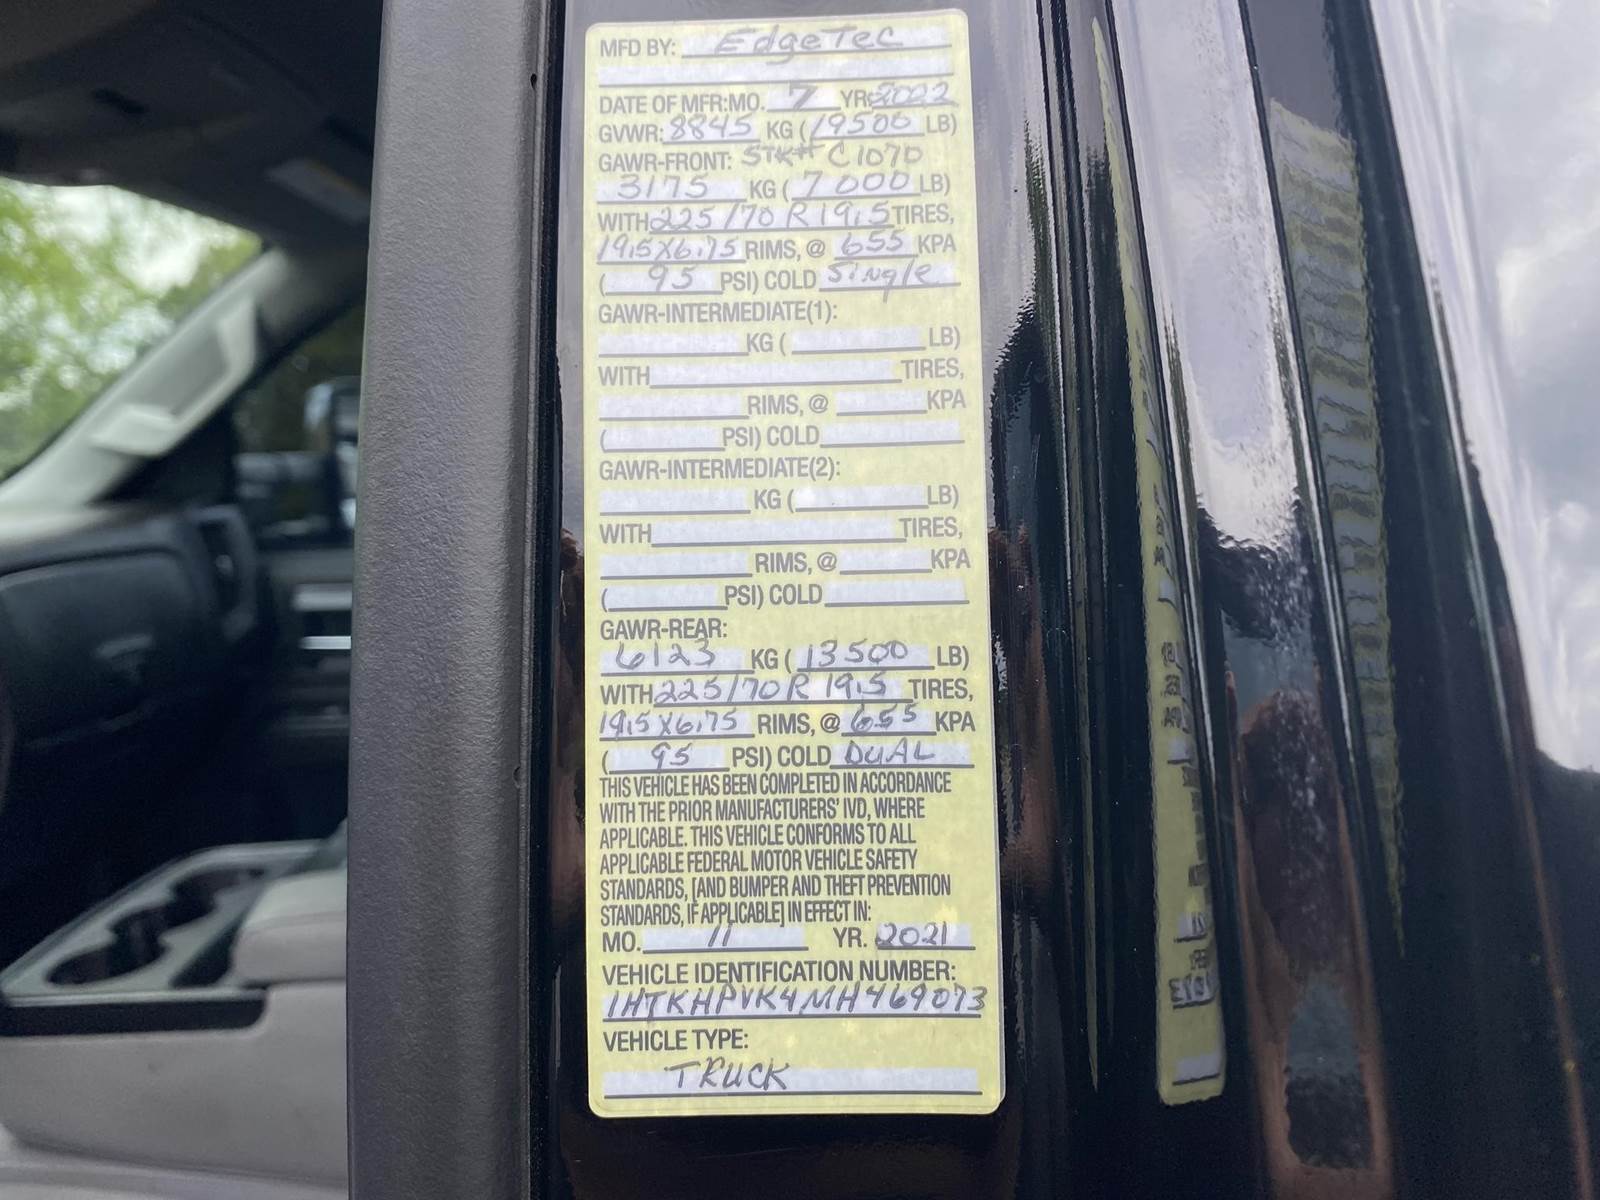 MFD BY: EdgeTec
DATE OF MFR:MO. 7 YR. 2022
GVWR: 8845 KG ( 19500 LB)
GAWR-FRONT: STK# C1070
3175 KG ( 7000 LB)
WITH 225/70 R 19.5 TIRES,
19.5X6.75 RIMS, @ 655 KPA
( 95 PSI) COLD Single
GAWR-INTERMEDIATE(1):
KG ( LB)
WITH TIRES,
RIMS, @ KPA
( PSI) COLD
GAWR-INTERMEDIATE(2):
KG ( LB)
WITH TIRES,
RIMS, @ KPA
( PSI) COLD
GAWR-REAR:
6123 KG ( 13500 LB)
WITH 225/70 R 19.5 TIRES,
19.5X6.75 RIMS, @ 655 KPA
( 95 PSI) COLD DUAL
THIS VEHICLE HAS BEEN COMPLETED IN ACCORDANCE
WITH THE PRIOR MANUFACTURERS' IVD, WHERE
APPLICABLE. THIS VEHICLE CONFORMS TO ALL
APPLICABLE FEDERAL MOTOR VEHICLE SAFETY
STANDARDS, [AND BUMPER AND THEFT PREVENTION
STANDARDS, IF APPLICABLE] IN EFFECT IN:
MO. 11 YR. 2021
VEHICLE IDENTIFICATION NUMBER:
1HTKHPVK4MH469073
VEHICLE TYPE:
TRUCK